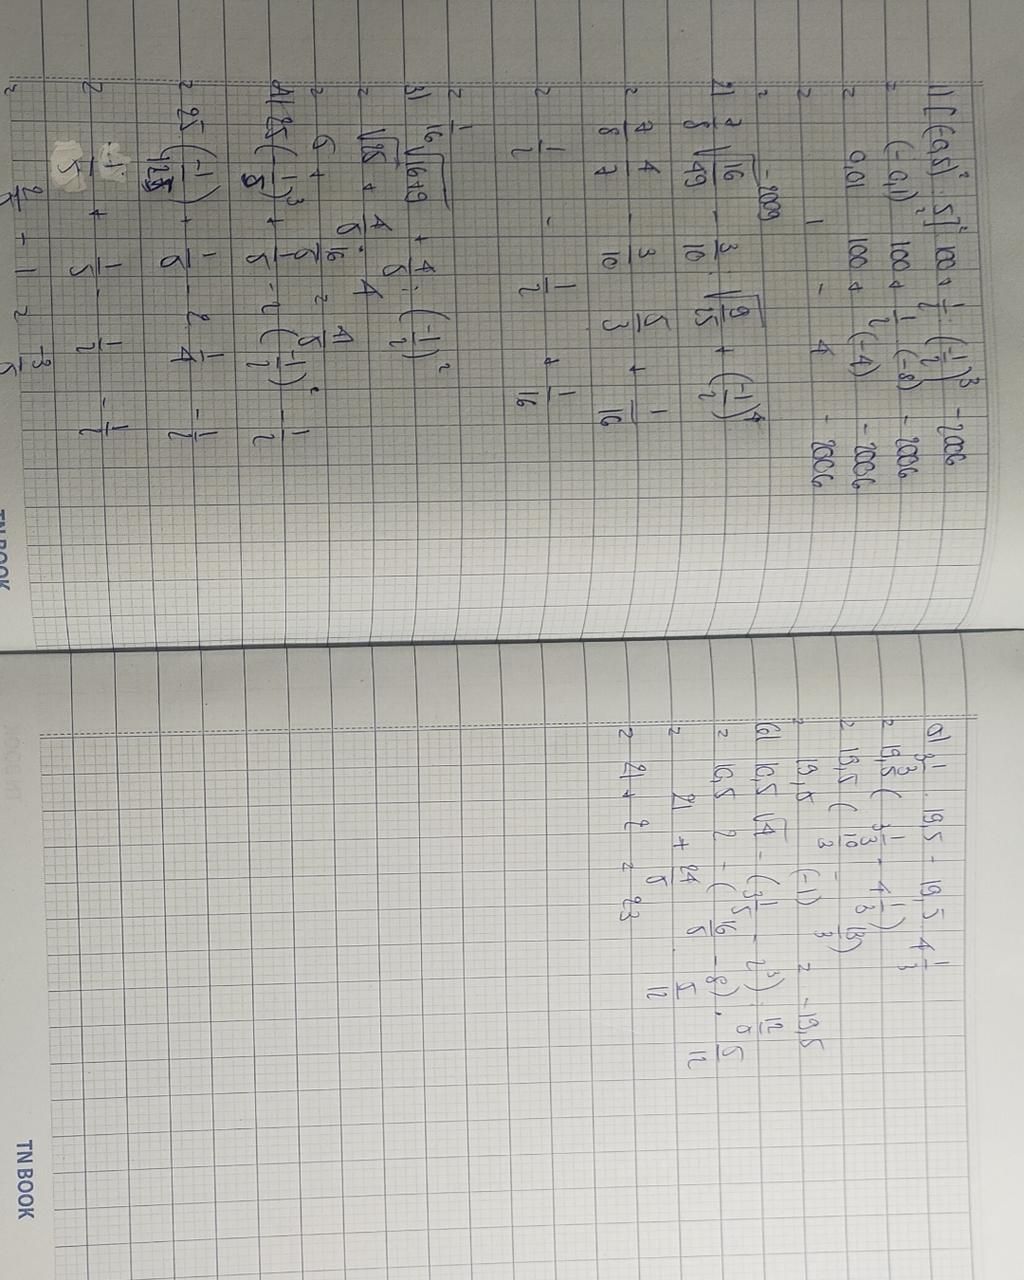 1) [(-0,5)² . 5]² 100 + 1/2 . (-1/2)³ - 2006
= (-0,1)² 100 + 1/2 (-8) - 2006
= 0,01 100 + (-4) - 2006
= 1 - 4 - 2006
= -2009
2) 7/8 √16/49 - 3/10 . √9/15 + (-1/2)⁴
= 7/8 4/7 - 3/10 5/3 + 1/16
= 1/2 - 1/2 + 1/16
= 1/16
3) √16+9 + 4/5 . (-1/2)²
= √25 + 4/5 . 4
= 5 + 16/5 = 41/5
4) 25 (-1/5)³ + 1/5 - 2 (-1/2)² - 1/2
= 25 (-1/125) + 1/5 - 2 1/4 - 1/2
= -1/5 + 1/5 - 1/2 - 1/2
= 2/5 - 1 = 3/5
TN BOOK
5) 3 1/3 . 19,5 - 19,5 4 1/3
= 19,5 (3 1/3 - 4 1/3)
= 19,5 (10/3 - 13/3)
= 19,5 (-1) = -19,5
6) 10,5 √4 - (3 1/5 - 2³) : 12/5
= 10,5 2 - (16/5 - 8) . 5/12
= 21 + 24/5 . 5/12
= 21 + 2 = 23
TN BOOK